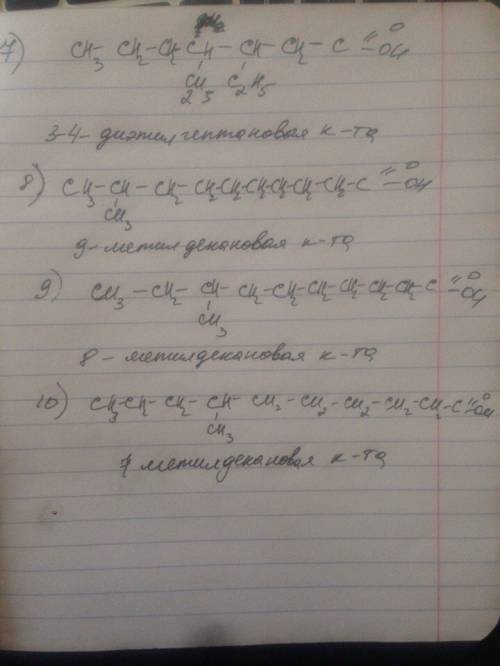 7) CH3 CH2 - CH2 CH - CH - CH2 - C =O -OH
C2H5 C2H5
3-4-диэтилгептановая к-та
8) CH3 - CH - CH2 - CH2-CH2-CH2-CH2-CH2-CH2-C =O -OH
CH3
9-метилдекановая к-та
9) CH3 - CH2 - CH - CH2 - CH2-CH2-CH2-CH2-CH2-C =O -OH
CH3
8-метилдекановая к-та
10) CH3-CH2-CH2-CH-CH2-CH2-CH2-CH2-CH2-C =O -OH
CH3
7 метилдекановая к-та